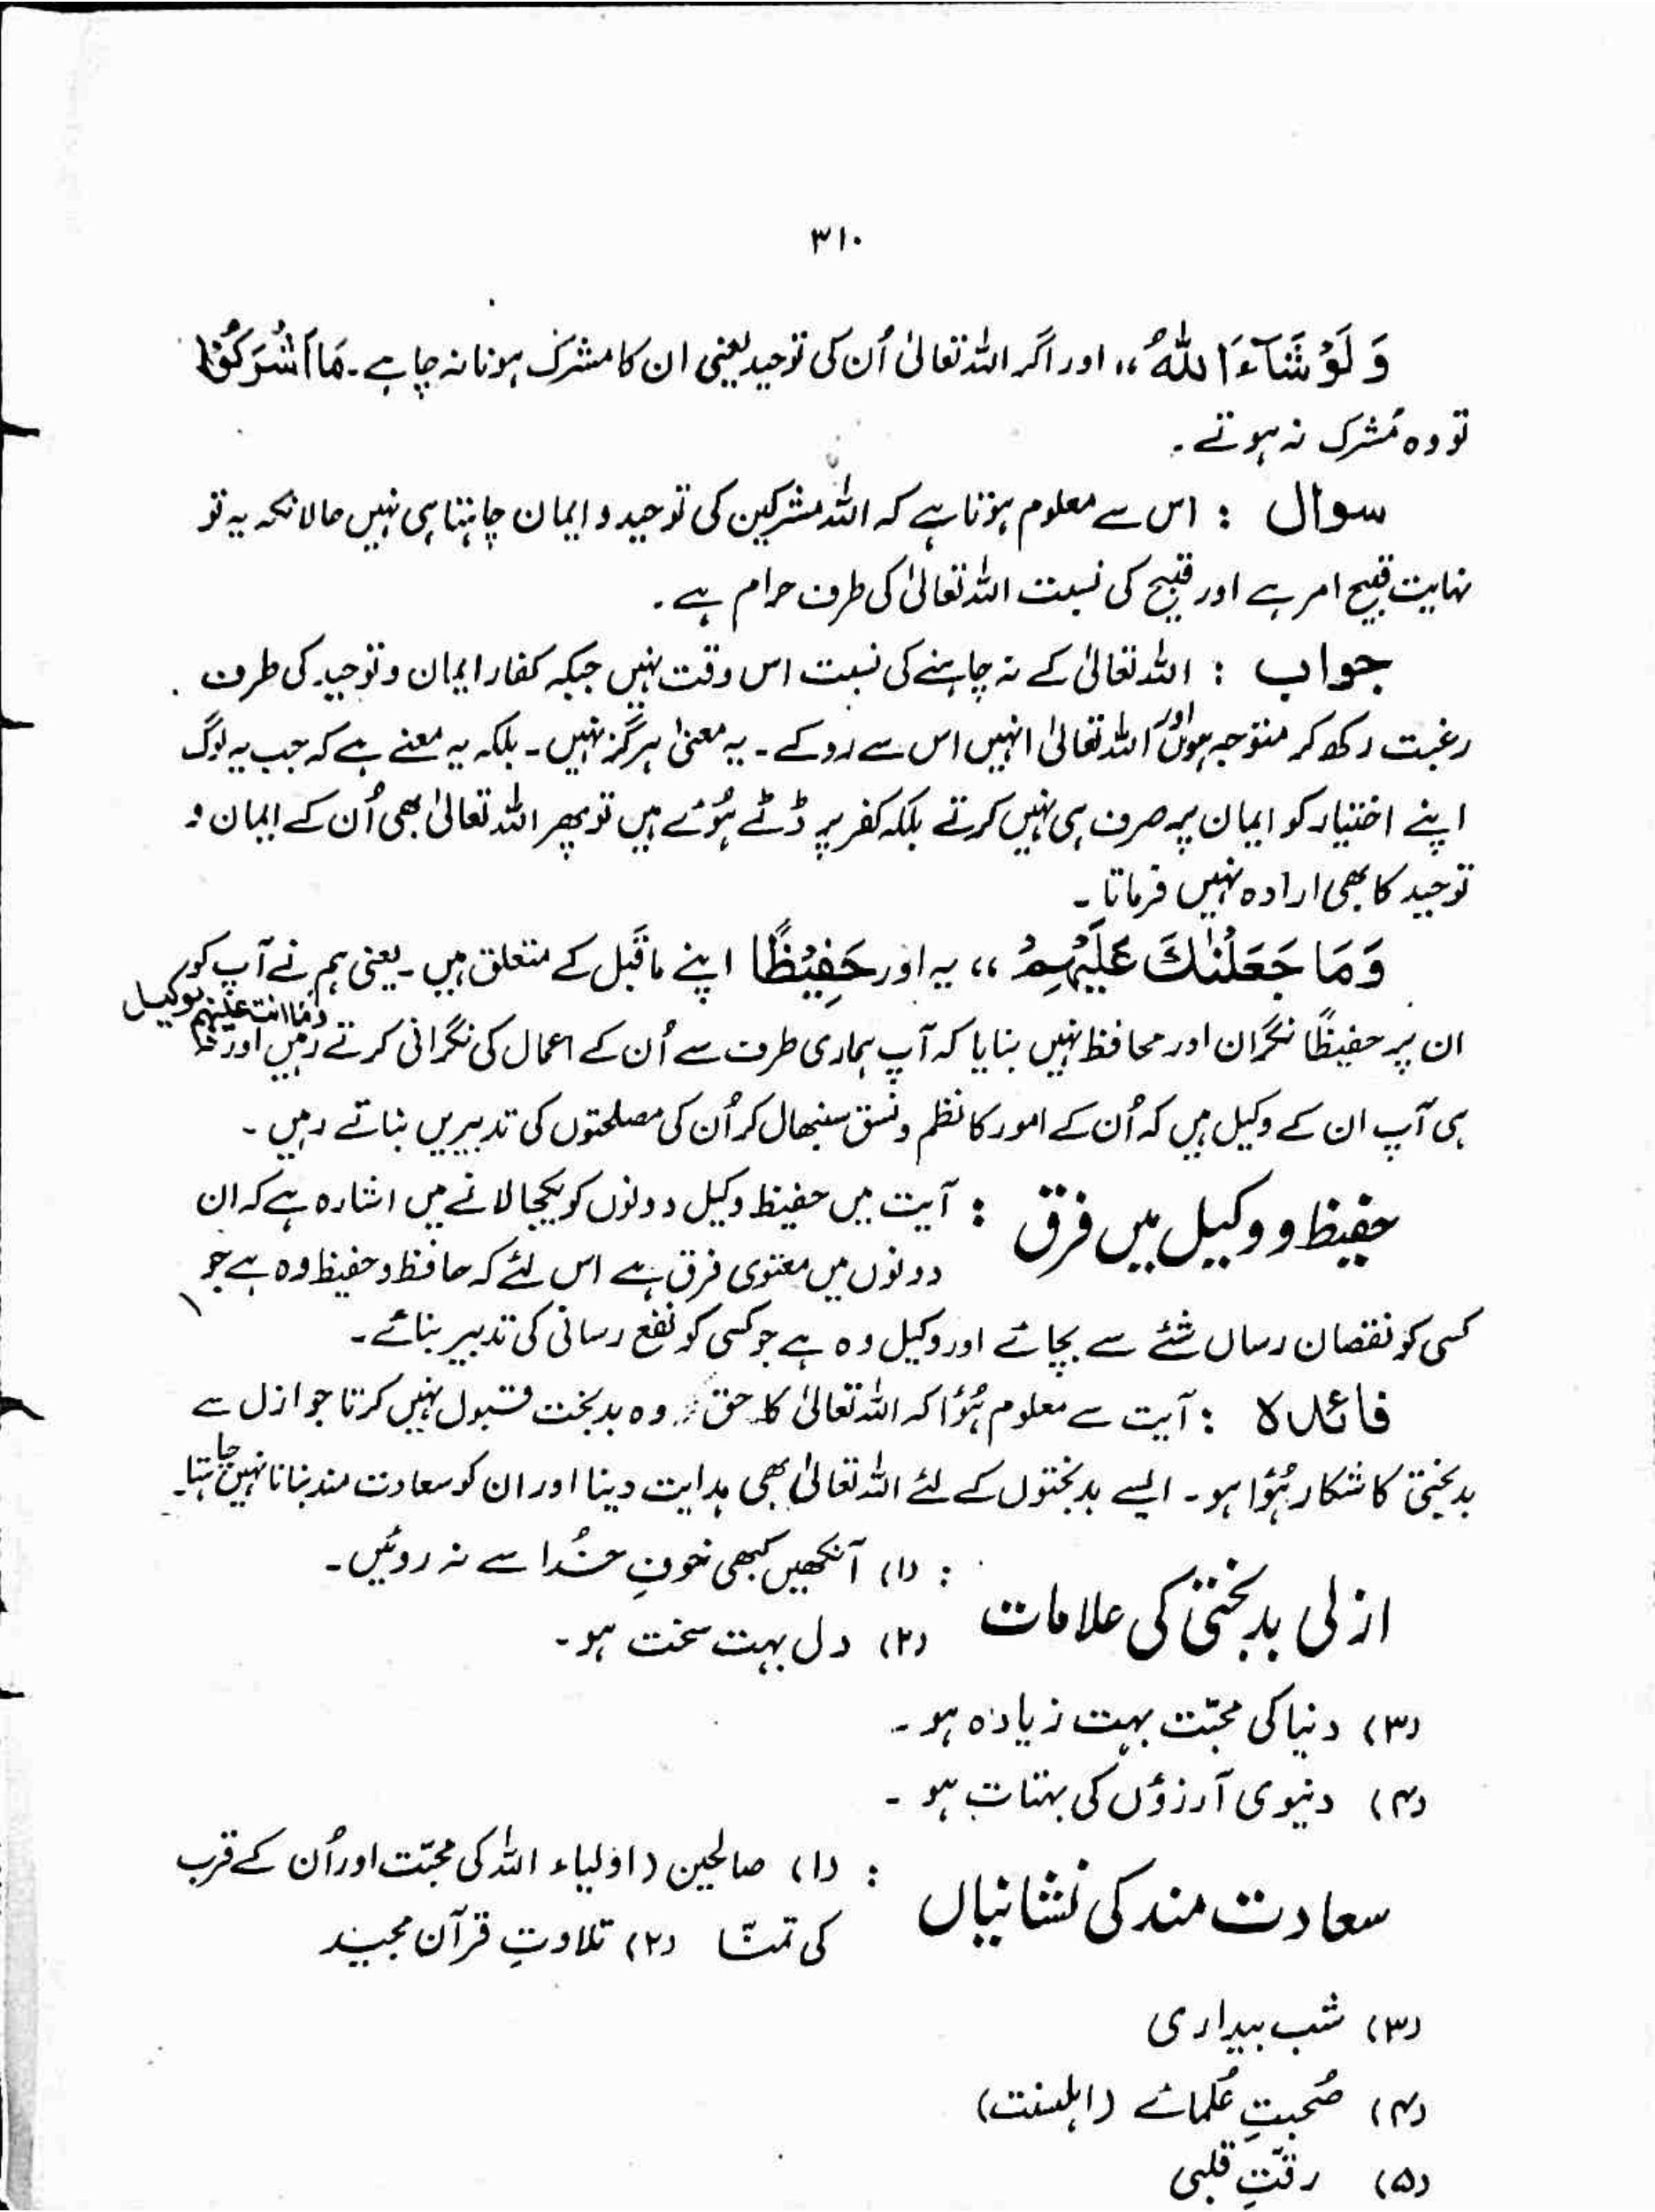 ۳۱۰
وَلَوْ شَآءَ اللّٰهُ ،، اور اگر اللہ تعالیٰ اُن کی توحید یعنی ان کا مشرک ہونا نہ چاہے۔ مَا اَشْرَكُوْا
تو وہ مُشرک نہ ہوتے۔
سوال : اس سے معلوم ہوتا ہے کہ اللہ مشرکین کی توحید و ایمان چاہتا ہی نہیں حالانکہ یہ تو
نہایت قبیح امر ہے اور قبیح کی نسبت اللہ تعالیٰ کی طرف حرام ہے۔
جواب : اللہ تعالیٰ کے نہ چاہنے کی نسبت اس وقت نہیں جبکہ کفار ایمان و توحید کی طرف
رغبت رکھ کر متوجہ ہوں اور اللہ تعالیٰ انہیں اس سے روکے۔ یہ معنیٰ ہرگز نہیں۔ بلکہ یہ معنے ہے کہ جب یہ لوگ
اپنے اختیار کو ایمان پر صرف ہی نہیں کرتے بلکہ کفر پر ڈٹے ہُوئے ہیں تو پھر اللہ تعالیٰ بھی اُن کے ایمان و
توحید کا بھی ارادہ نہیں فرماتا۔
وَمَا جَعَلْنٰكَ عَلَيْهِمْ ،، یہ اور حَفِيْظًا اپنے ماقبل کے متعلق ہیں۔ یعنی ہم نے آپ کو
ان پر حفیظًا نگران اور محافظ نہیں بنایا کہ آپ ہماری طرف سے اُن کے اعمال کی نگرانی کرتے رہیں اور وَمَا انت علیہم بوکیل
ہی آپ ان کے وکیل ہیں کہ اُن کے امور کا نظم و نسق سنبھال کر اُن کی مصلحتوں کی تدبیریں بناتے رہیں۔
حفیظ و وکیل میں فرق : آیت میں حفیظ وکیل دونوں کو یکجا لانے میں اشارہ ہے کہ ان
دونوں میں معنوی فرق ہے اس لئے کہ حافظ و حفیظ وہ ہے جو
کسی کو نقصان رساں شئے سے بچائے اور وکیل وہ ہے جو کسی کو نفع رسانی کی تدبیر بنائے۔
فائدہ : آیت سے معلوم ہُوا کہ اللہ تعالیٰ کا حق وہ بدبخت قبول نہیں کرتا جو ازل سے
بدبختی کا شکار ہُوا ہو۔ ایسے بدبختوں کے لئے اللہ تعالیٰ بھی ہدایت دینا اور ان کو سعادت مند بنانا نہیں چاہتا۔
ازلی بدبختی کی علامات : (۱) آنکھیں کبھی خوفِ خُدا سے نہ روئیں۔
(۲) دل بہت سخت ہو۔
(۳) دنیا کی محبّت بہت زیادہ ہو۔
(۴) دنیوی آرزوؤں کی بہتات ہو۔
سعادت مند کی نشانیاں : (۱) صالحین (اولیاء اللہ کی محبّت اور اُن کے قرب
کی تمنّا (۲) تلاوتِ قرآن مجید
(۳) شب بیداری
(۴) صُحبتِ عُلمائے (اہلسنت)
(۵) رقّتِ قلبی